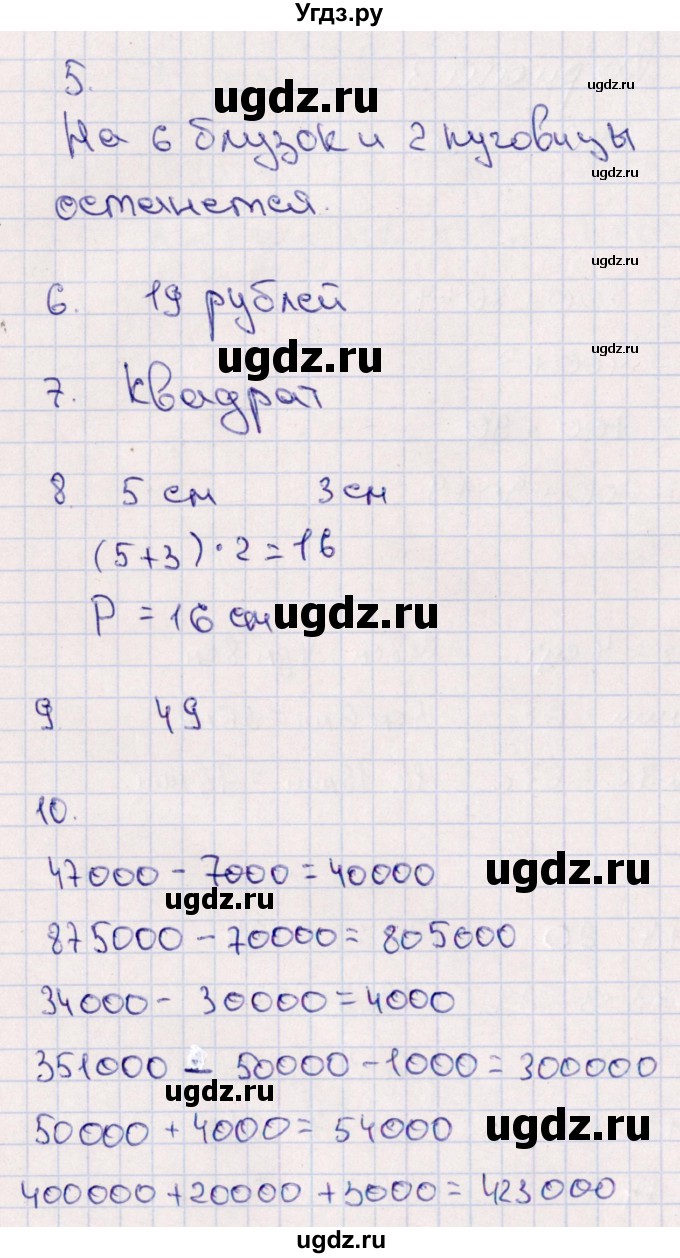 Угдз.ру
5.
ugdz.ru ugdz.ru
На 6 блузок и 2 пуговицы
ugdz.ru
останется.
ugdz.ru
6. 19 рублей
ugdz.ru ugdz.ru
7. Квадрат
8 5 см 3 см
(5+3)·2=16
P = 16 см
ugdz.ru
9 49
10.
47000 - 7000 = 40000
ugdz.ru ugdz.ru
875000 - 70000 = 805000
34000 - 30000 = 4000
351000 - 50000 - 1000 = 300000
ugdz.ru
50000 + 4000 = 54000
ugdz.ru
400000 + 20000 + 3000 = 423000
ugdz.ru